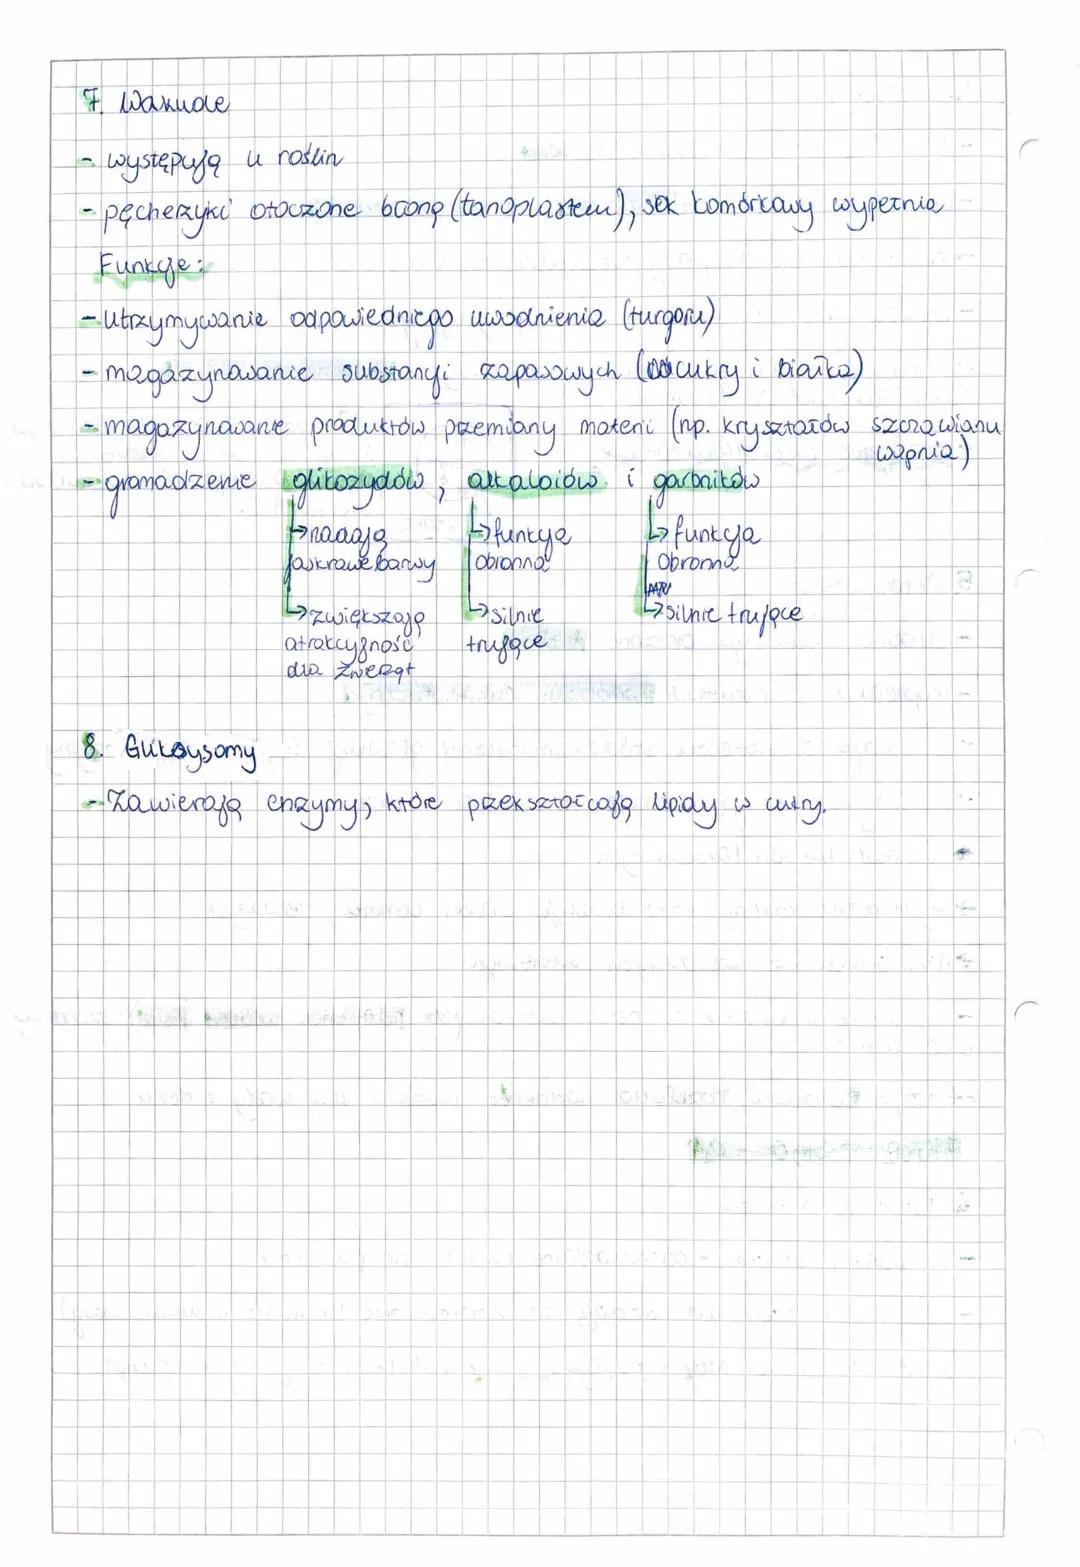 7. Wakuole
- występują u roślin
- pęcherzyki otoczone błoną (tanoplastem), sok komórkowy wypełnia
Funkcje:
- utrzymywanie odpowiedniego uwodnienia (turgoru)
- magazynowanie substancji zapasowych (cukry i białka)
- magazynowanie produktów przemiany materii (np. kryształów szczawianu wapnia)
- gromadzenie glikozydów, alkaloidów i garbników
↳ nadają jaskrawe barwy
↳ zwiększają atrakcyjność dla zwierząt
↳ funkcja obronna
↳ silnie trujące
↳ funkcja obronna
↳ silnie trujące
8. Glikoysomy
- Zawierają enzymy, które przekształcają lipidy w cukry.